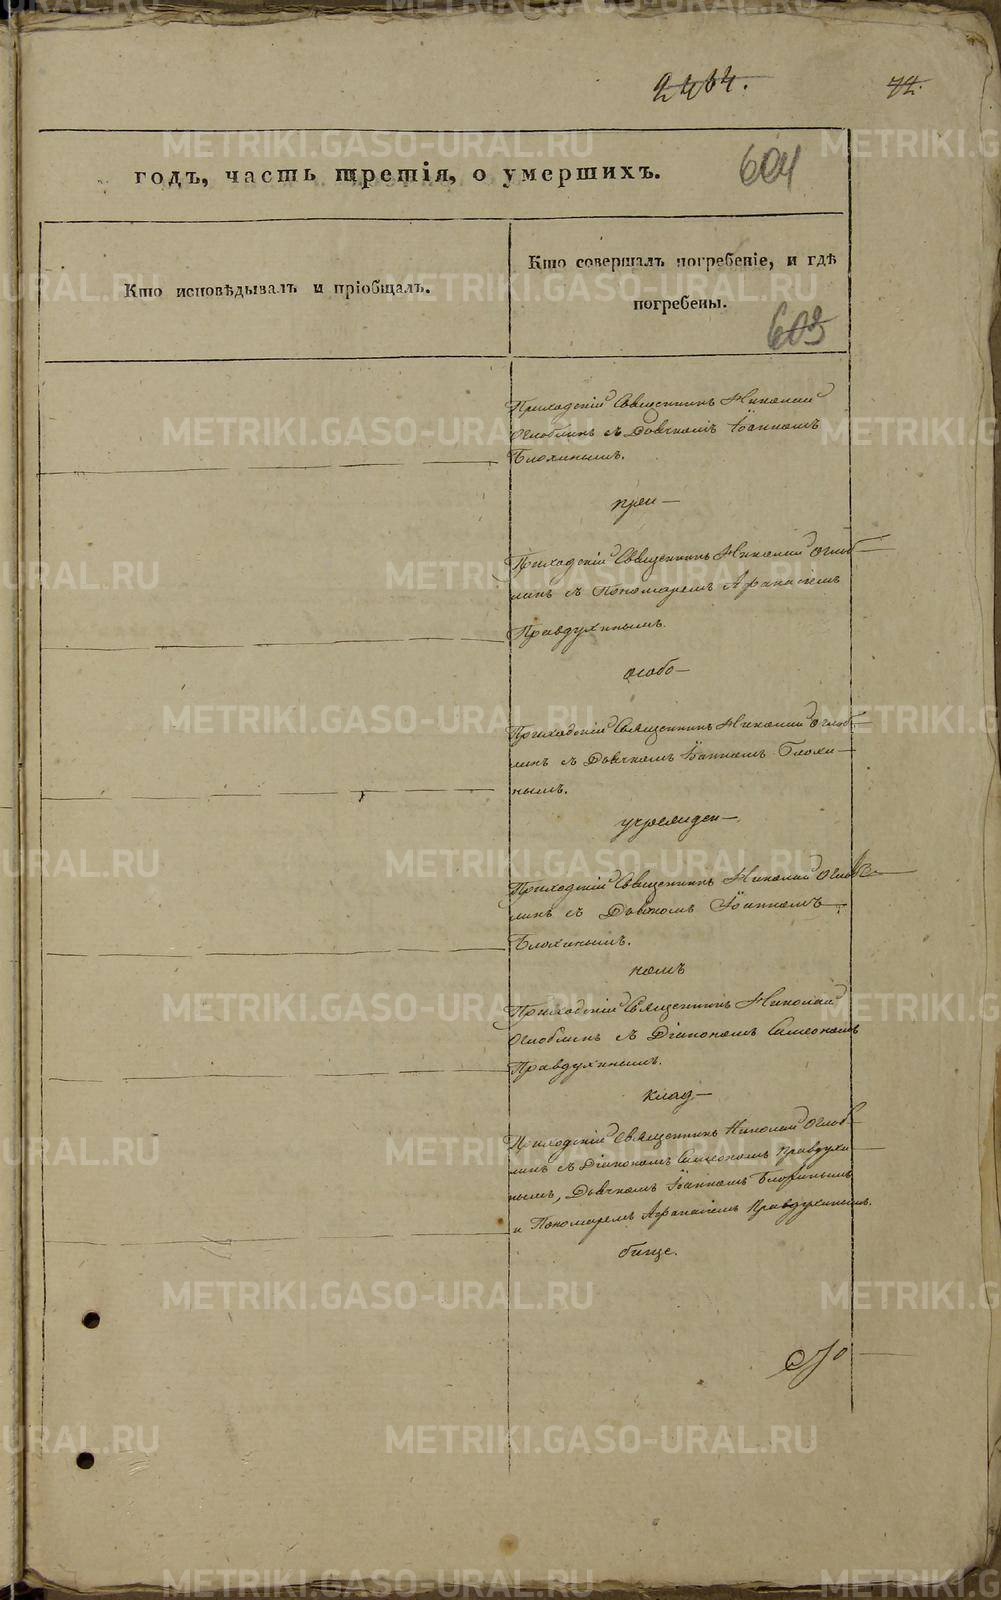 2464.
72.
годъ, часть третія, о умершихъ.
604
Кто исповѣдывалъ и пріобщалъ.
Кто совершалъ погребеніе, и гдѣ
погребены.
603
Приходскій Священникъ Николай
Оглоблинъ съ Дьячкомъ Іоанномъ
Блохинымъ.
при—
Приходскій Священникъ Николай Оглоб
линъ съ Пономаремъ Афанасіемъ
Правдухинымъ.
особо—
Приходскій Священникъ Николай Оглоб
линъ съ Дьячкомъ Іоанномъ Блохи—
нымъ.
учрежден—
Приходскій Священникъ Николай Оглоб
линъ съ Дьячкомъ Іоанномъ
Блохинымъ.
номъ
Приходскій Священникъ Николай
Оглоблинъ съ Діакономъ Симеономъ
Правдухинымъ.
клад—
Приходскій Священникъ Николай Оглоб
линъ съ Діакономъ Симеономъ Правдухи
нымъ, Дьячкомъ Іоанномъ Блохинымъ
и Пономаремъ Афанасіемъ Правдухинымъ.
бище.
METRIKI.GASO-URAL.RU